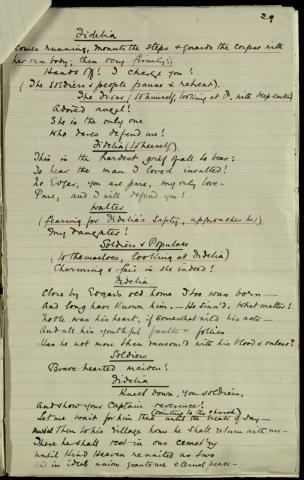 29
Fidelia
comes running, mounts the steps & guards the corpse with
her own body; then very firmly:)
Hands off! I charge you!
(The soldiers & people pause & retreat).
The Friar (to himself, looking at F. with deep emotion)
Adored angel!
She is the only one
Who dares defend me!
Fidelia (to herself)
This is the hardest grief of all to bear:
To hear the man I loved insulted!
No Edgar, you are pure, my only love -
Pure, and I will defend you!
Walter
(fearing for Fidelia's safety, approaches her)
My daughter!
Soldiers & Populace
(to themselves, looking at Fidelia)
Charming & fair is she indeed!
Fidelia
Close by Edgar's old home I too was born -
And long have known him. - He sinn'd. What matter!
Noble was his heart, if somewhat wild his acts -
And all his youthful faults & follies
Has he not more than ransom'd with his blood & valour?
Soldiers
Brave hearted maiden!
Fidelia
Kneel down, you soldiers,
And show your Captain reverence!
(pointing to the church)
Let me wait for him there until the break of day -
Then to his village home he shall return with me -
There he shall rest in our cemet'ry
Until Kind Heaven reunites us two
And in ideal union grants us eternal peace -